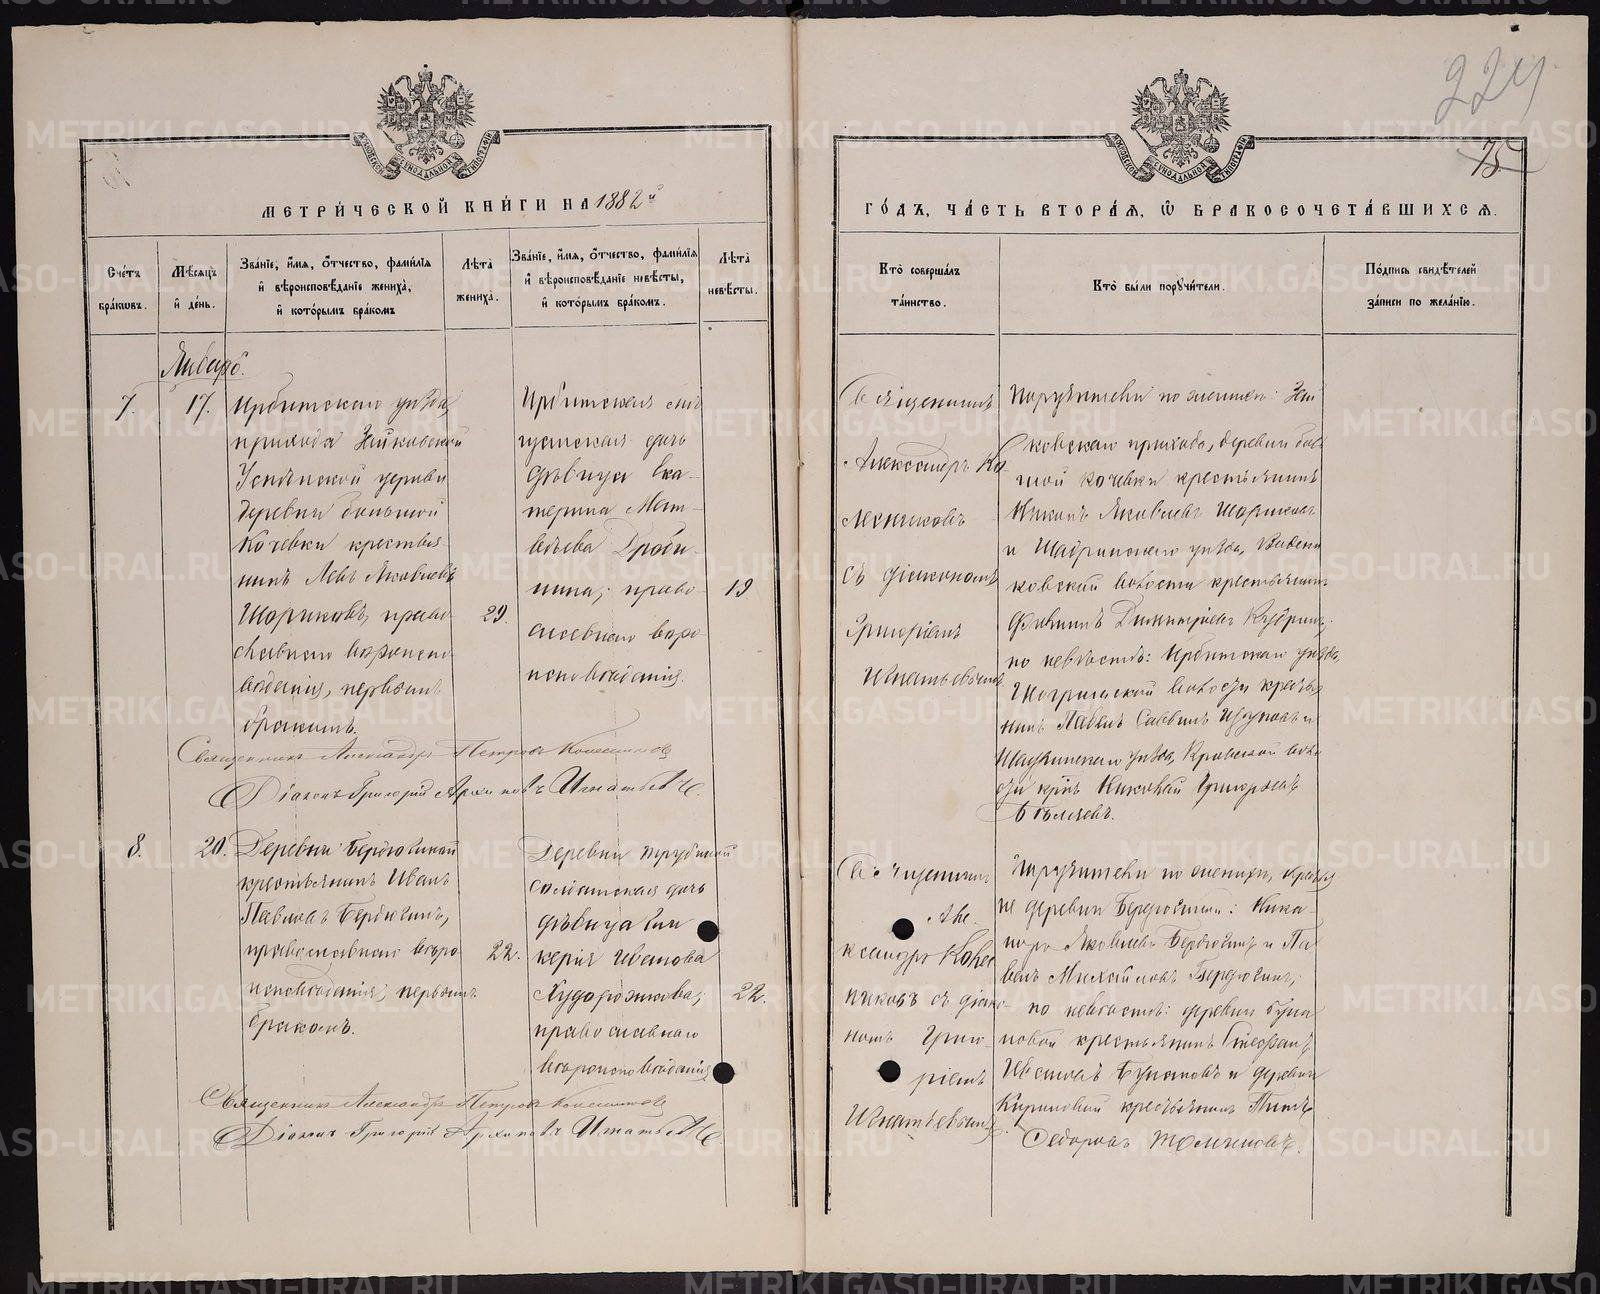 224
75
МЕТРИ́ЧЕСКОЙ КНИ́ГИ НА 1882й
ГО́ДЪ, ЧА́СТЬ ВТОРА́Я, Ѡ БРАКОСОЧЕТА́ВШИХСЯ.
Сче́тъ бра́ковъ.
Мѣ́сяцъ и҆ де́нь.
Зва́нїе, и҆́мя, ѻ҆́тчество, фами́лїя и҆ вѣроисповѣ́данїе жениха́, и҆ кото́рымъ бра́комъ
Лѣ́та жениха́.
Зва́нїе, и҆́мя, ѻ҆́тчество, фами́лїя и҆ вѣроисповѣ́данїе невѣ́сты, и҆ кото́рымъ бра́комъ.
Лѣ́та невѣ́сты.
Кто̀ соверша́лъ та́инство.
Кто̀ бы́ли поручи́тели.
По́дпись свидѣ́телей за́писи по жела́нїю.
Январь.
7.
17.
Ирбитскаго уѣзда,
прихода Зайковской
Успѣнской церкви
деревни большой
Кочевки крестья-
нинъ Левъ Яковлевъ
Шориковъ, право-
славнаго вѣроиспо-
вѣданія, первымъ
бракомъ.
29.
Ирбитская
дочь
дѣвица Ека-
терина Мат-
вѣева
право-
славнаго вѣро-
исповѣданія.
19
Священникъ
Александръ Ко-
лесниковъ
съ діакономъ
Григоріемъ
Игнатьевымъ
Поручители по женихѣ: Зай
ковскаго прихода, деревни боль
шой Кочевки крестьянинъ
Яковлевъ Шориковъ
и Шадринскаго уѣзда,
волости крестьянинъ
Димитріевъ
по невѣстѣ: Ирбитскаго уѣзда,
волости крестья
нинъ Павелъ Саввинъ
Шадринскаго уѣзда, воло
сти крест. Николай Григорьевъ
Священникъ Александръ Петровъ Колесниковъ
Діаконъ Григорій Архиповъ Игнатьевъ.
8.
20.
Деревни Бердюгиной
крестьянинъ Иванъ
Павловъ Бердюгинъ,
православнаго вѣро-
исповѣданія, первымъ
бракомъ.
22.
Деревни
солдатская дочь
дѣвица Гли
керія Иванова
Худорожкова,
православнаго
вѣроисповѣданія
22.
Священникъ
Але-
ксандръ Колес
никовъ съ діако-
номъ Григо-
ріемъ
Игнатьевымъ
Поручители по женихѣ, крестья
не деревни Бердюгиной: Ника-
норъ Яковлевъ Бердюгинъ и Па
велъ Михайловъ Бердюгинъ,
по невѣстѣ: деревни Була
новой крестьянинъ Стефанъ
Ивановъ Булановъ и деревни
Кириловой крестьянинъ
Ѳедоровъ
Священникъ Александръ Петровъ Колесниковъ
Діаконъ Григорій Архиповъ Игнатьевъ.
METRIKI.GASO-URAL.RU